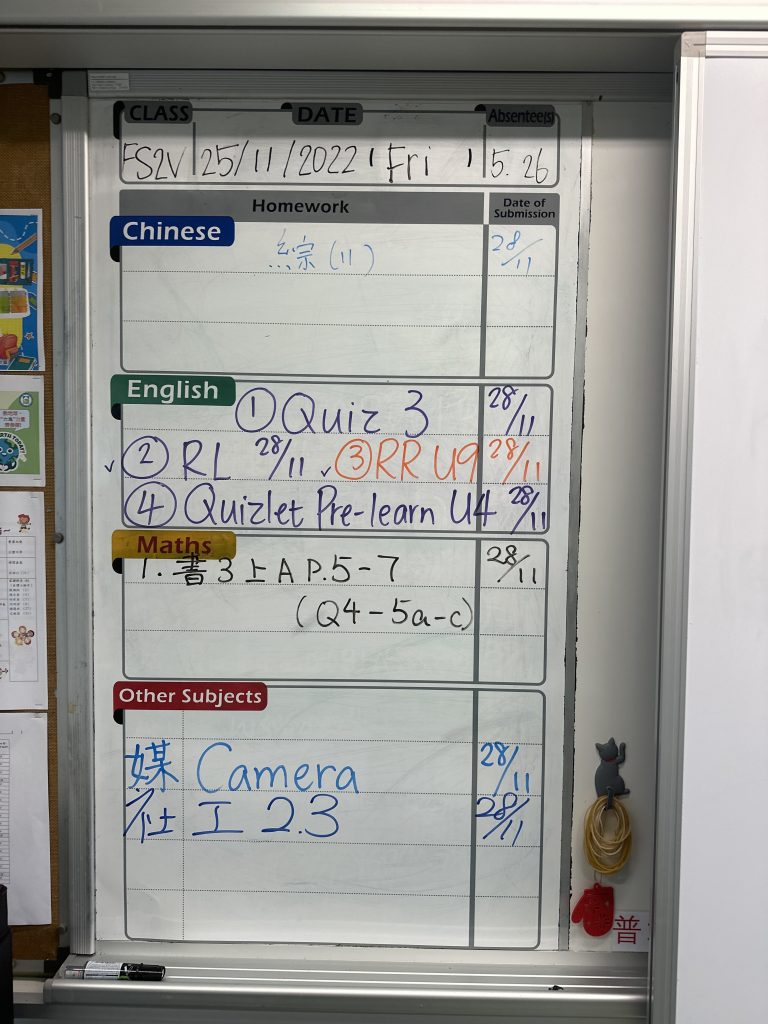 CLASS DATE Absentee(s)
FS2V 25/11/2022 (Fri) 5. 26
Homework Date of Submission
Chinese
綜(11) 28/11
English
① Quiz 3 28/11
✓ ② RL 28/11 ✓ ③ RR U9 28/11
④ Quizlet Pre-learn U4 28/11
Maths
1. 書3上A P.5-7 28/11
(Q4-5a-c)
Other Subjects
媒 Camera 28/11
社工2.3 28/11
普